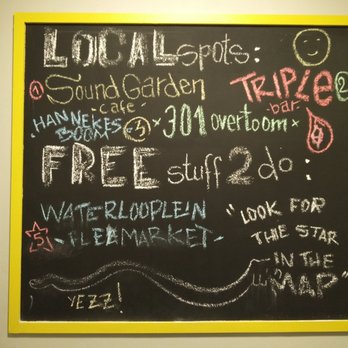 LOCAL spots:
1 Sound Garden
- cafe -
TRIPLE 2
bar
HANNEKES BOOM 3
x 301 overtoom x
FREE stuff 2 do:
WATERLOOPLEIN
5 - FLEAMARKET -
"LOOK FOR
THE STAR
IN THE
MAP"
YEZZ!